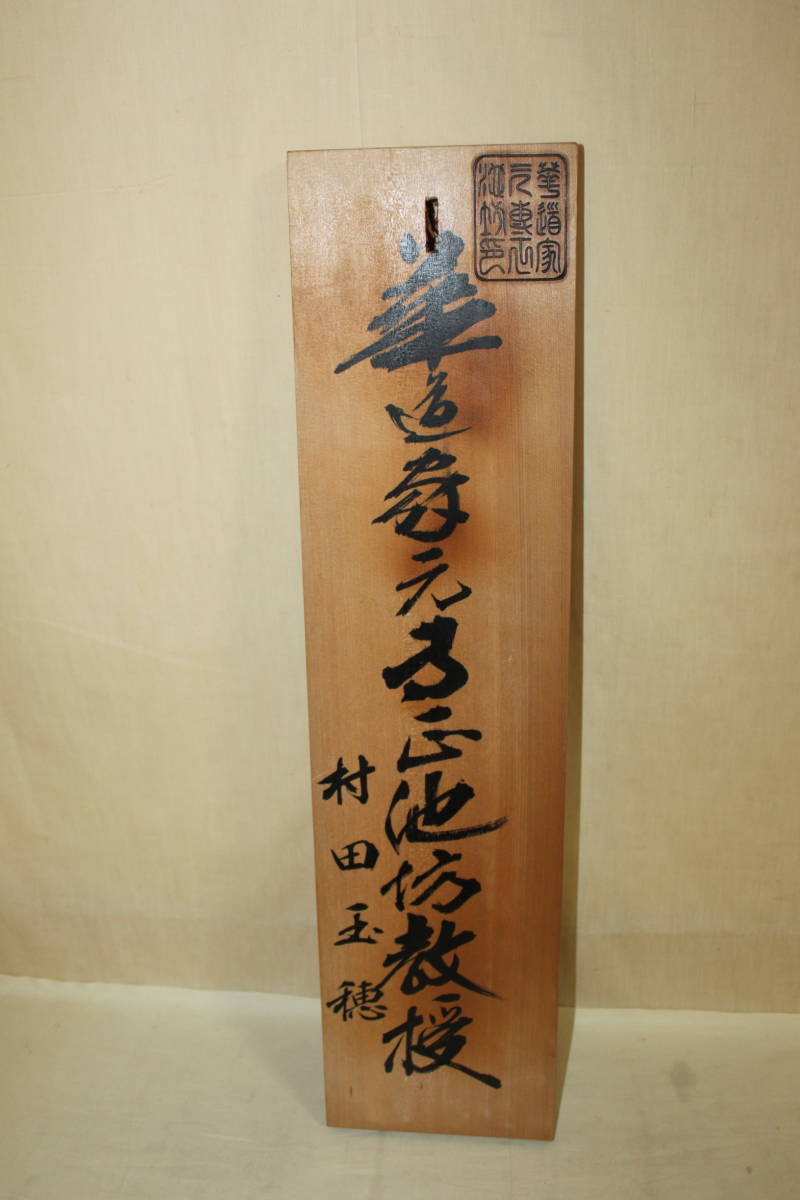 華道家
元専正
池坊印
華道家元専正池坊教授
村田玉穂